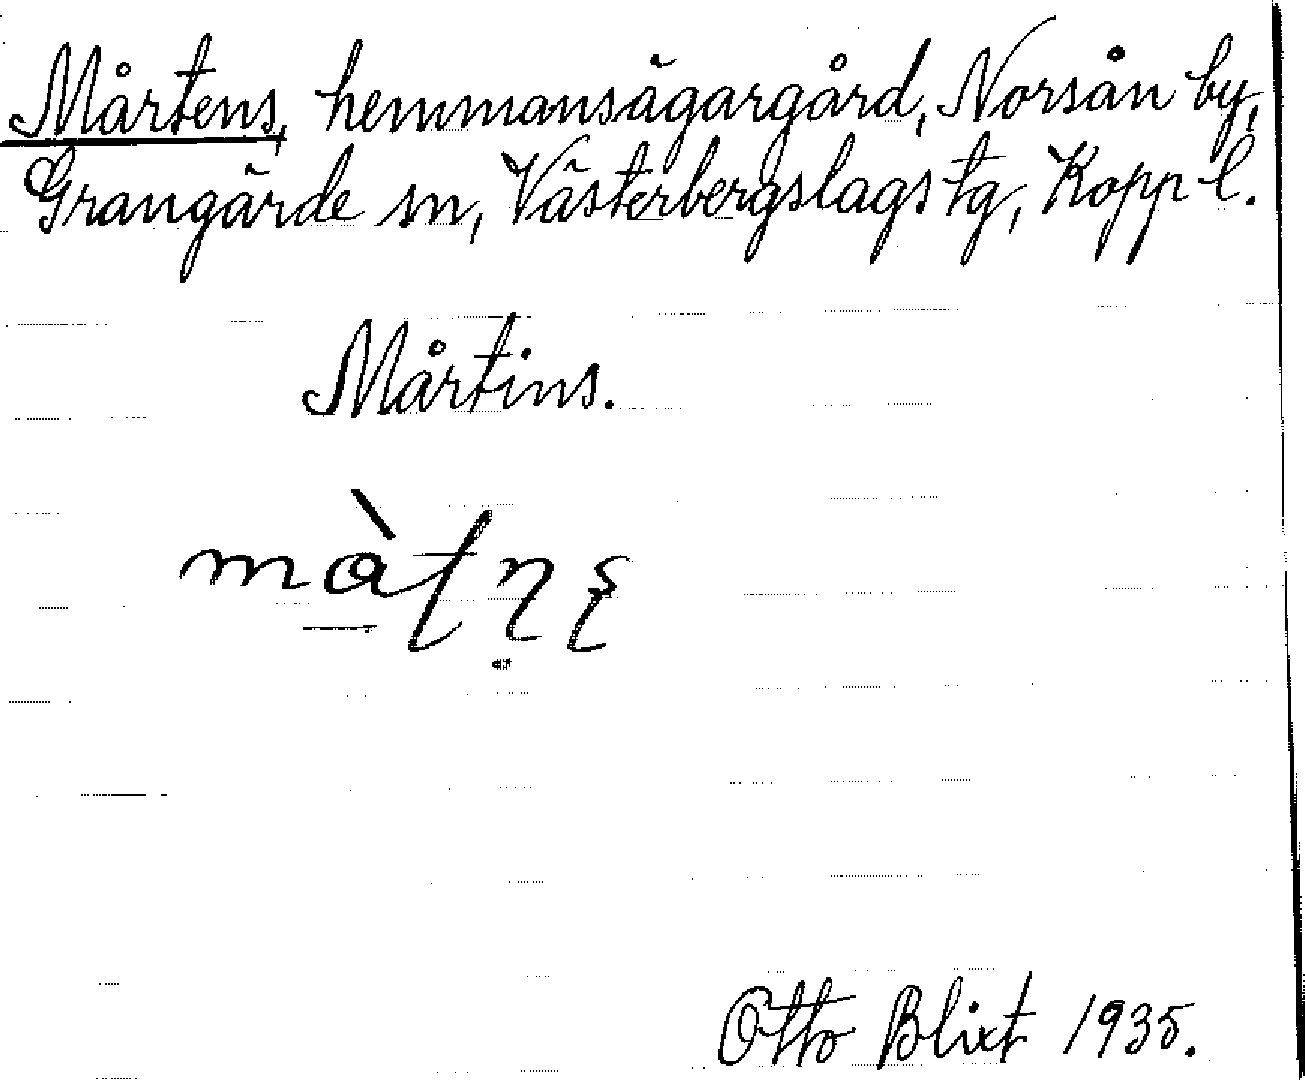 Mårtens, hemmansägargård, Norsån by,
Grangärde sn, Västerbergslags tg, Kopp l.
Mårtins.
Otto Blixt 1935.